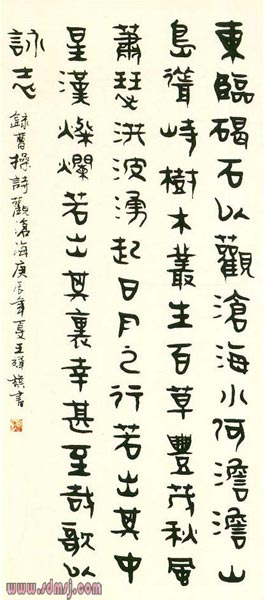 東臨碣石以觀滄海水何澹澹山
島聳峙樹木叢生百草豐茂秋風
蕭瑟洪波湧起日月之行若出其中
星漢燦爛若出其裏幸甚至哉歌以
詠志
録曹操詩觀滄海庚辰年夏王旗書
www.sdmsj.com